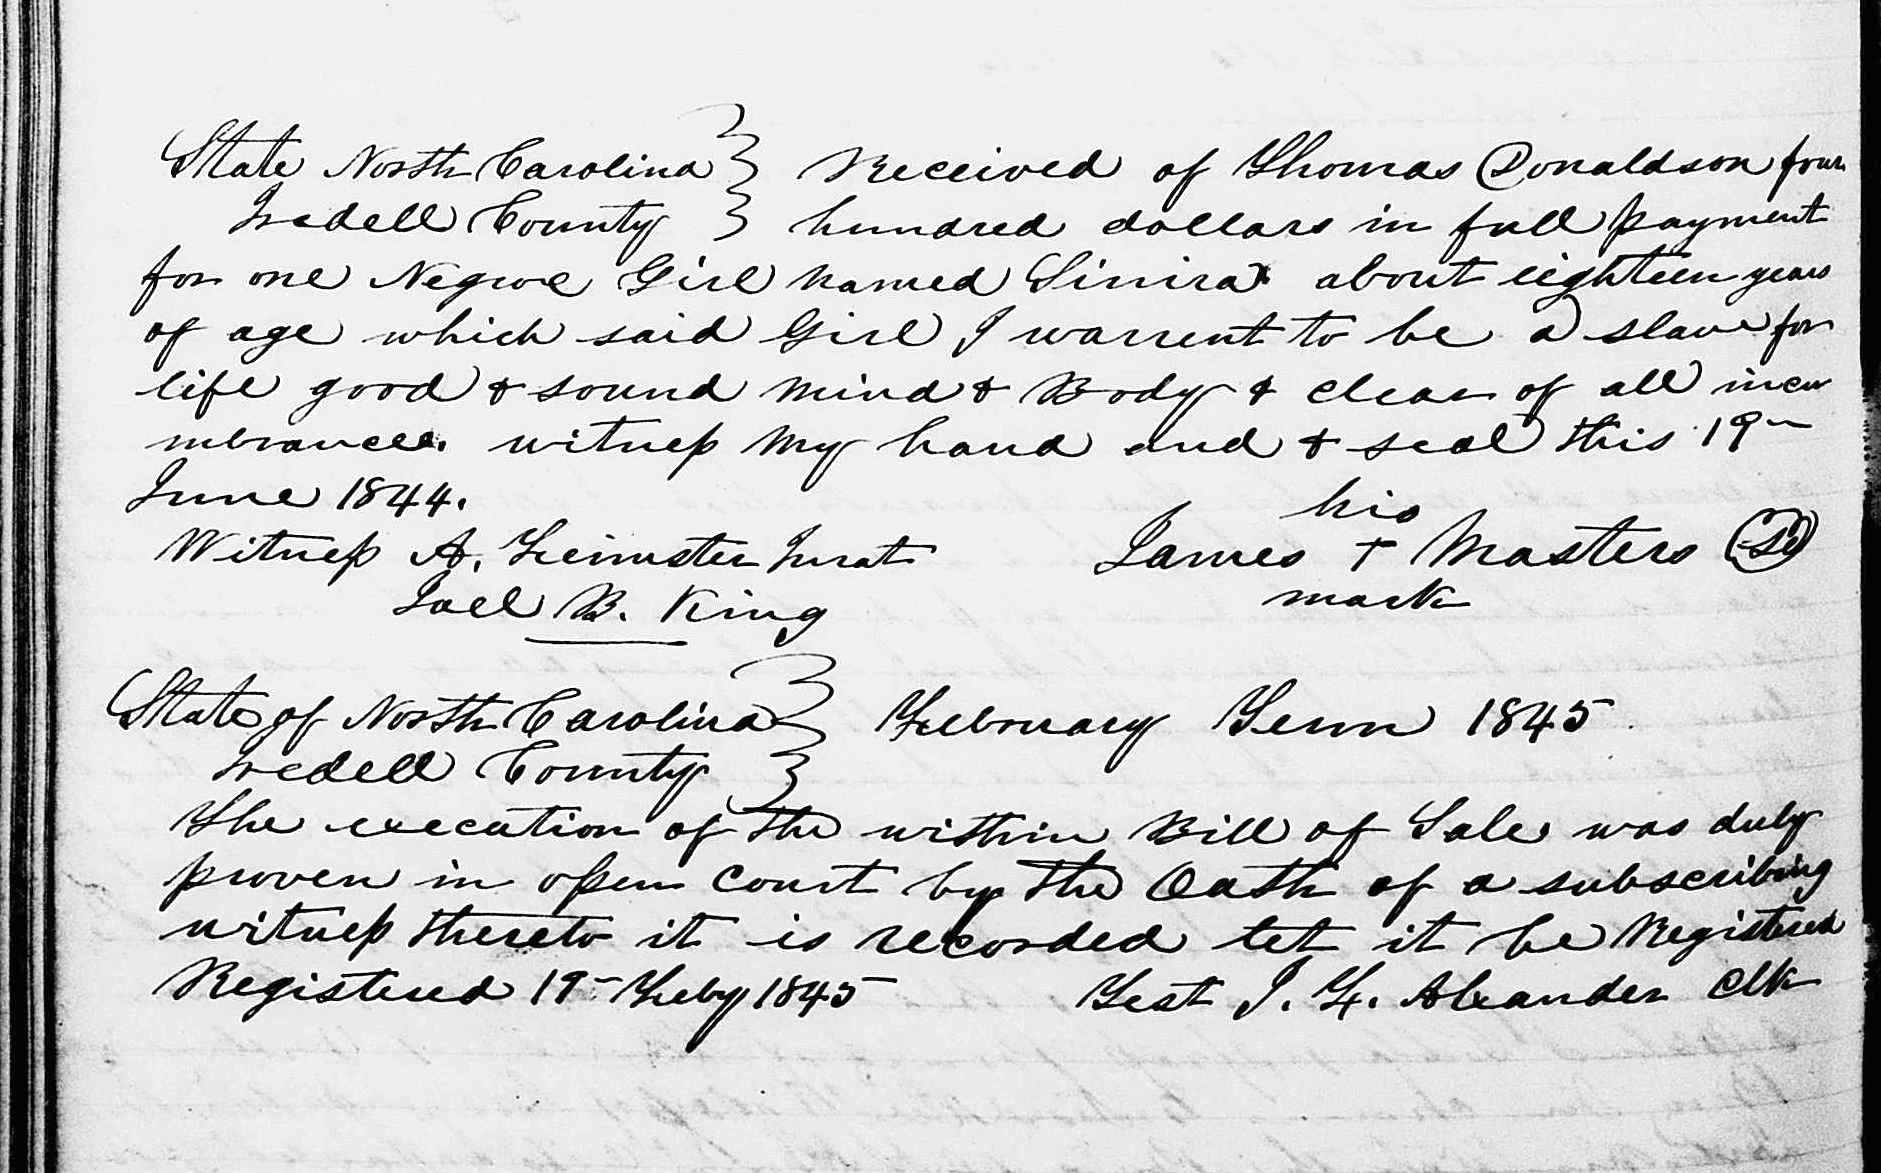 State North Carolina } Received of Thomas Donaldson four
Iredell County } hundred dollars in full payment
for one Negroe Girl named Sinira about eighteen years
of age which said Girl I warrent to be a slave for
life good & sound mind & Body & clear of all incu
mbrances. witness my hand and & seal this 19th
June 1844.
his
Witness A. Feimster Jurat James + Masters (Sl)
Joel B. King mark
State of North Carolina } February Term 1845
Iredell County }
The execution of the within Bill of Sale was duly
proven in open court by the Oath of a subscribing
witness thereto it is recorded let it be Registered
Registered 19th Feby 1845 Test J. F. Alexander Clk